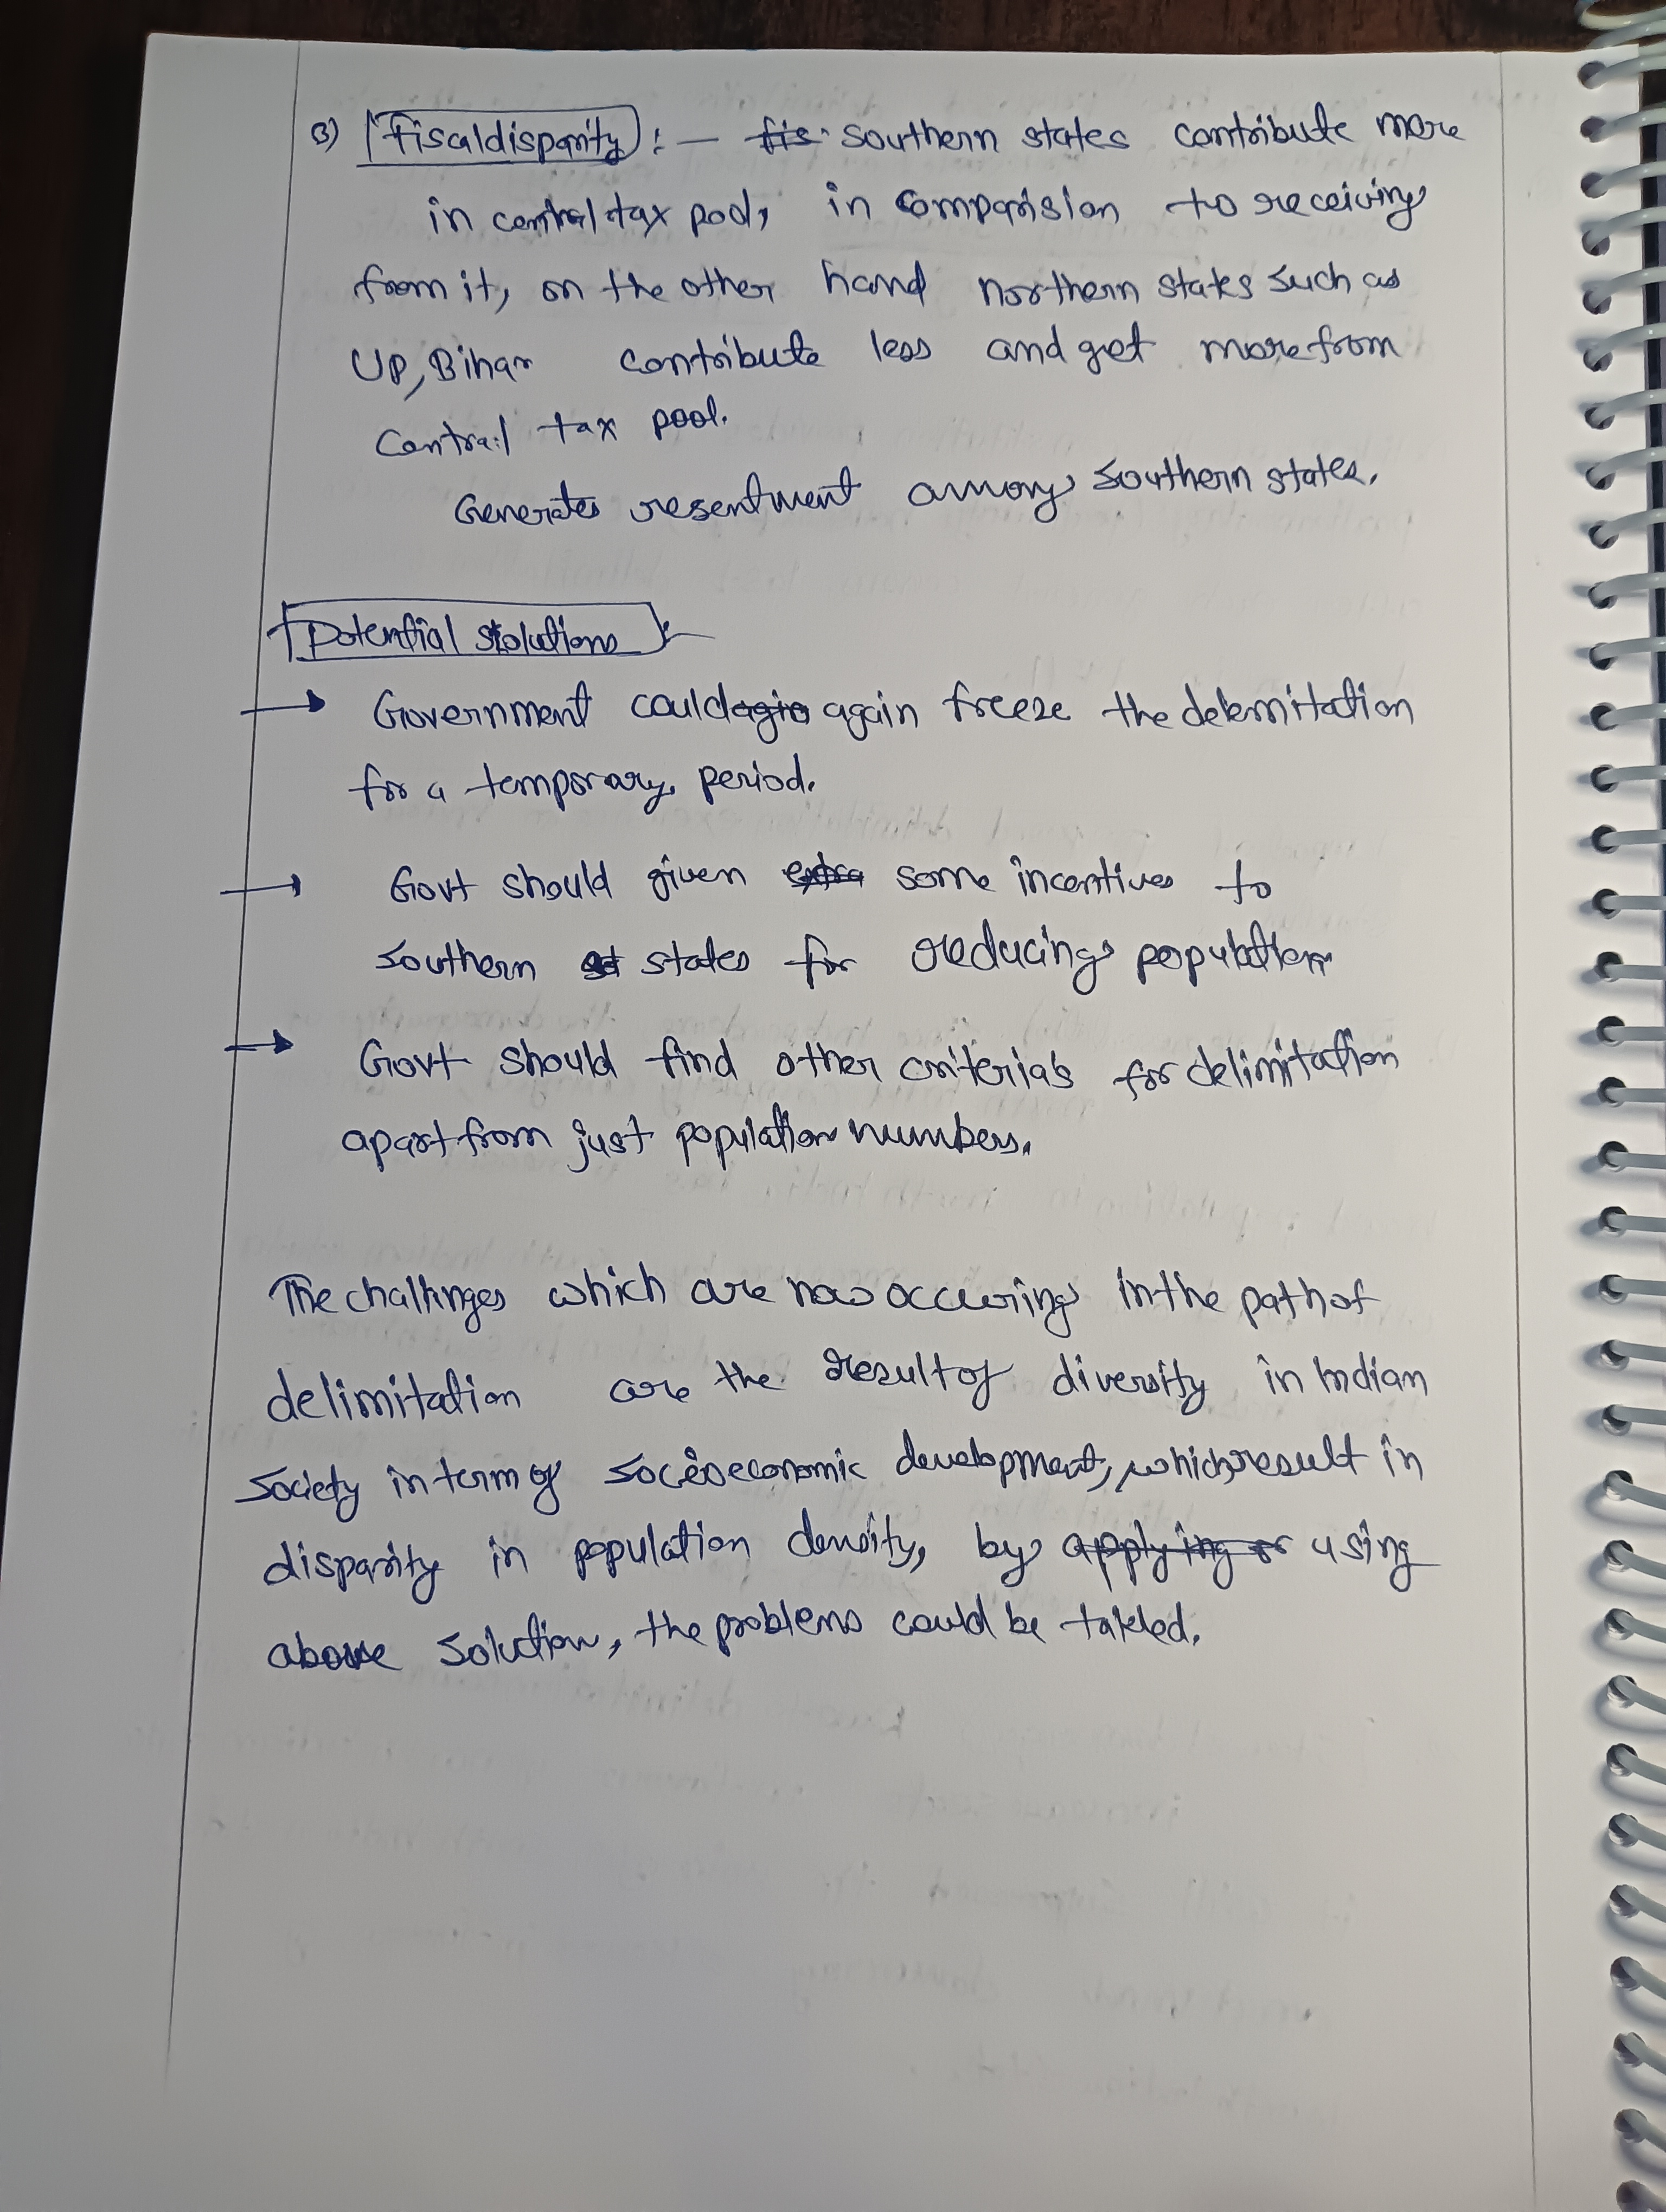 3) Fiscal disparity :- fis southern states contribute more
in central tax pool, in comparision to receiving
from it, on the other hand northern states such as
UP, Bihar contribute less and get more from
Central tax pool.
Generates resentment among southern states.
Potential solutions :-
→ Government could again freeze the delemitation
for a temporary period.
→ Govt should given extra some incentives to
southern st states for reducing population
→ Govt should find other criteria's for delimitation
apart from just population numbers.
The challenges which are now occuring in the path of
delimitation are the result of diversity in Indian
society in term of socioeconomic development, which result in
disparity in population density, by applying or using
above solution, the problems could be takled.